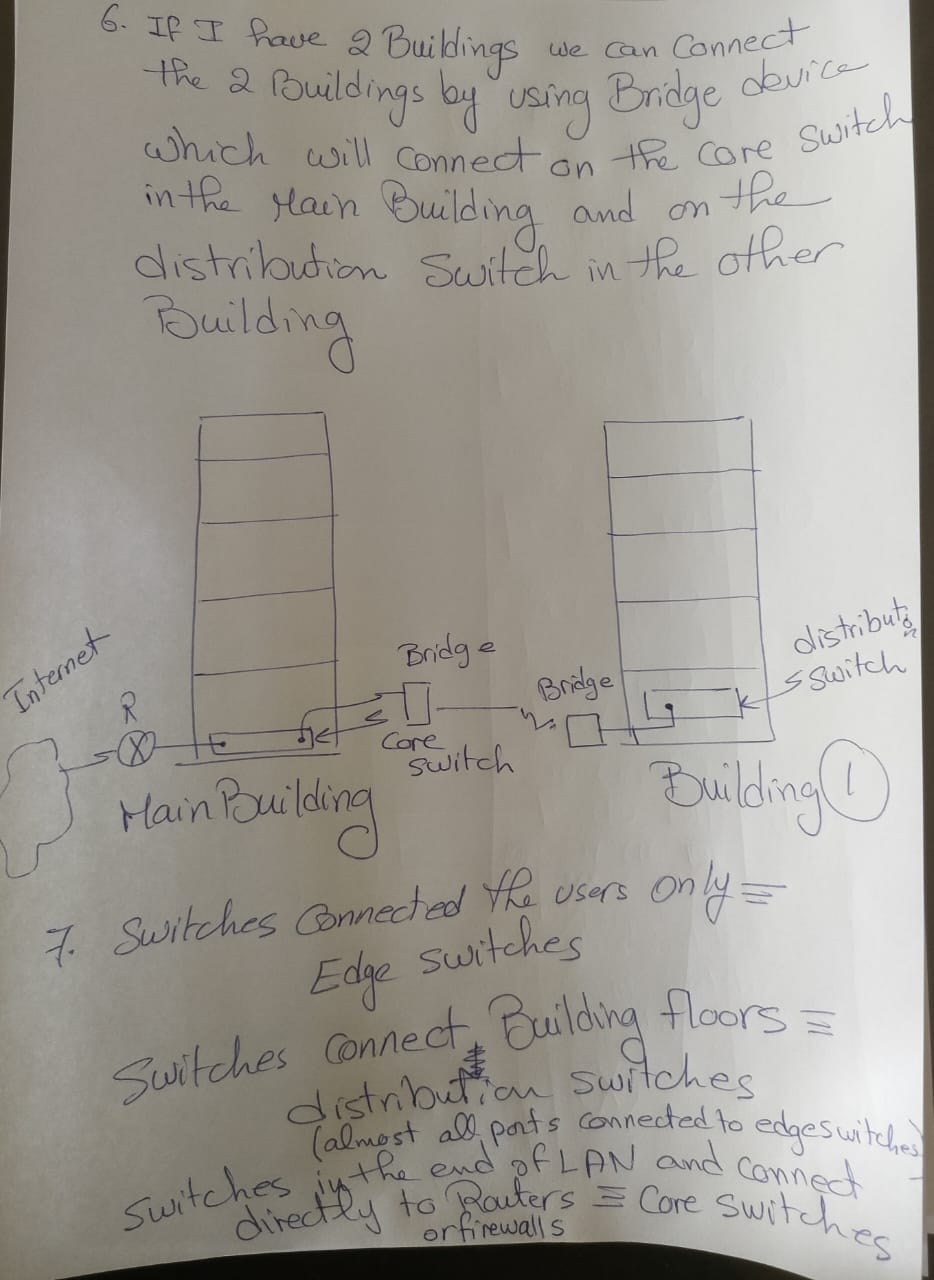 6. If I have 2 Buildings we can connect
the 2 Buildings by using Bridge device
which will connect on the core switch
in the Main Building and on the
distribution switch in the other
Building
Internet
R
Bridge
core
switch
Bridge
distribution
switch
Main Building
Building 1
7. Switches connected the users only ≡
Edge switches
Switches connect Building floors ≡
distribution switches
(almost all ports connected to edge switches)
switches in the end of LAN and connect
directly to Routers ≡ Core switches
or firewalls